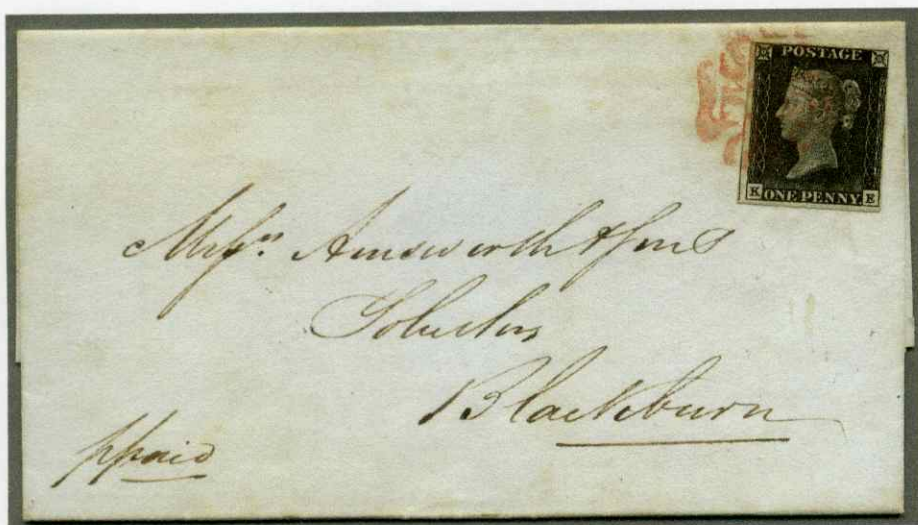 POSTAGE
K ONE PENNY E
Messrs. Ainsworth & Sons
Solicitors
Blackburn
ppaid